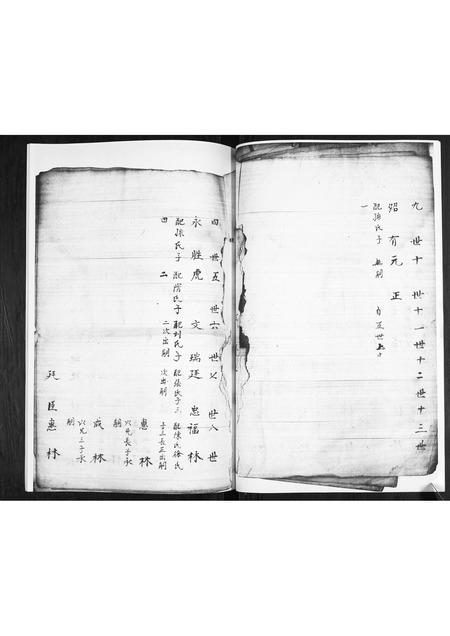 九世十世十一世十二世十三世
昭有元正
配孫氏子一
無嗣
四世五世六世七世八世
永勝虎文瑞廷忠福林
配孫氏子四
配常氏子二
配刘氏子二次出嗣
配張氏子三次出嗣
配陳氏徐氏子三長正出嗣
惠林
以兄長子承嗣
成林
以兄三子承嗣
廷臣惠林